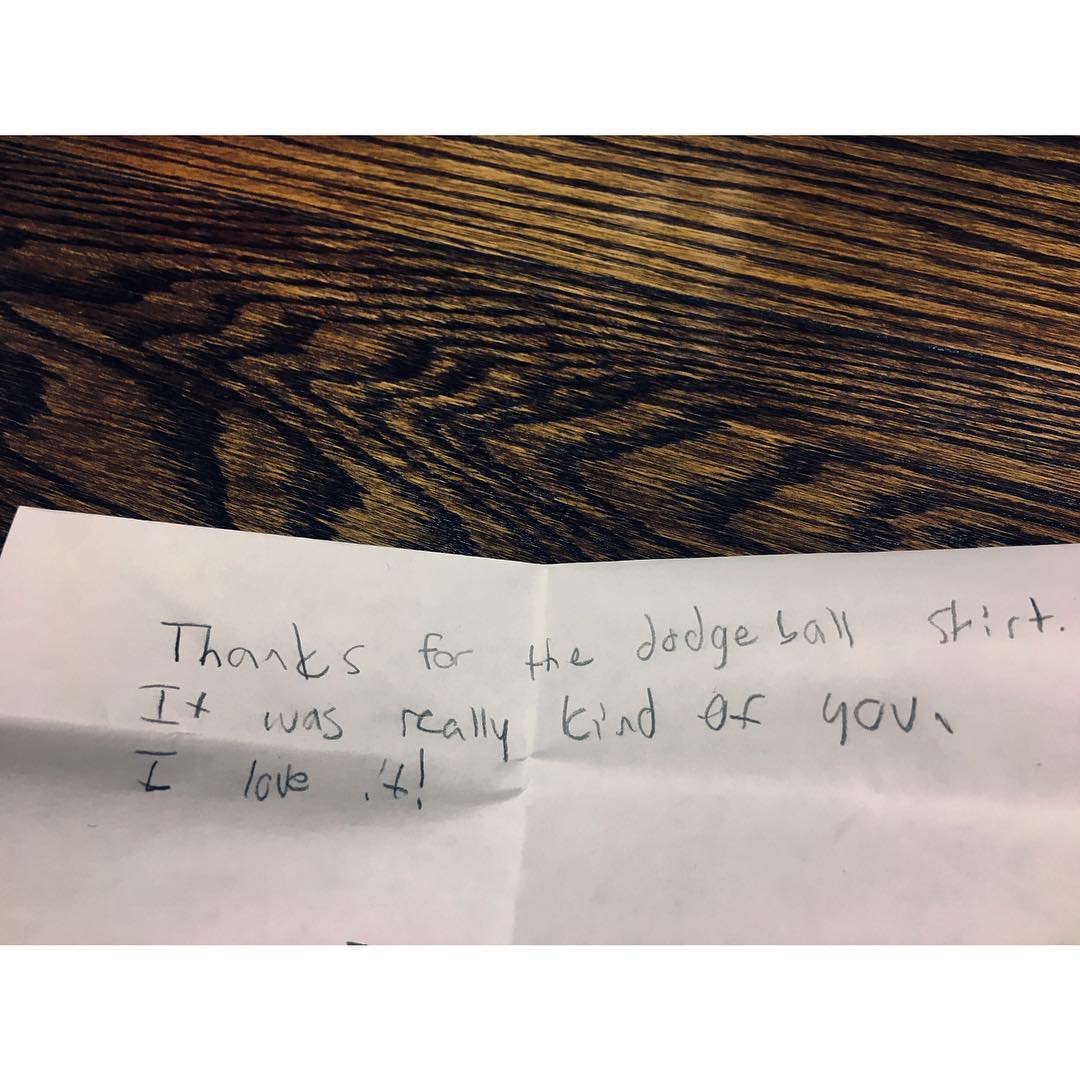 Thanks for the dodgeball shirt.
It was really kind of you.
I love it!